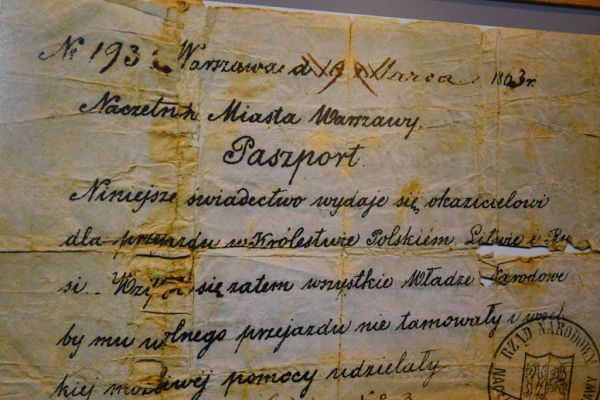 № 193 Warszawa d 19 Marca 1863 r.
Naczelnik Miasta Warszawy.
Paszport
Niniejsze świadectwo wydaje się okazicielowi
dla przejazdu w Królestwie Polskiém, Litwie i Ru
si. Wzywa się zatem wszystkie Władze Narodowe
by mu wolnego przejazdu nie tamowały i wszel
kiej możliwej pomocy udzielały
RZĄD NARODOWY